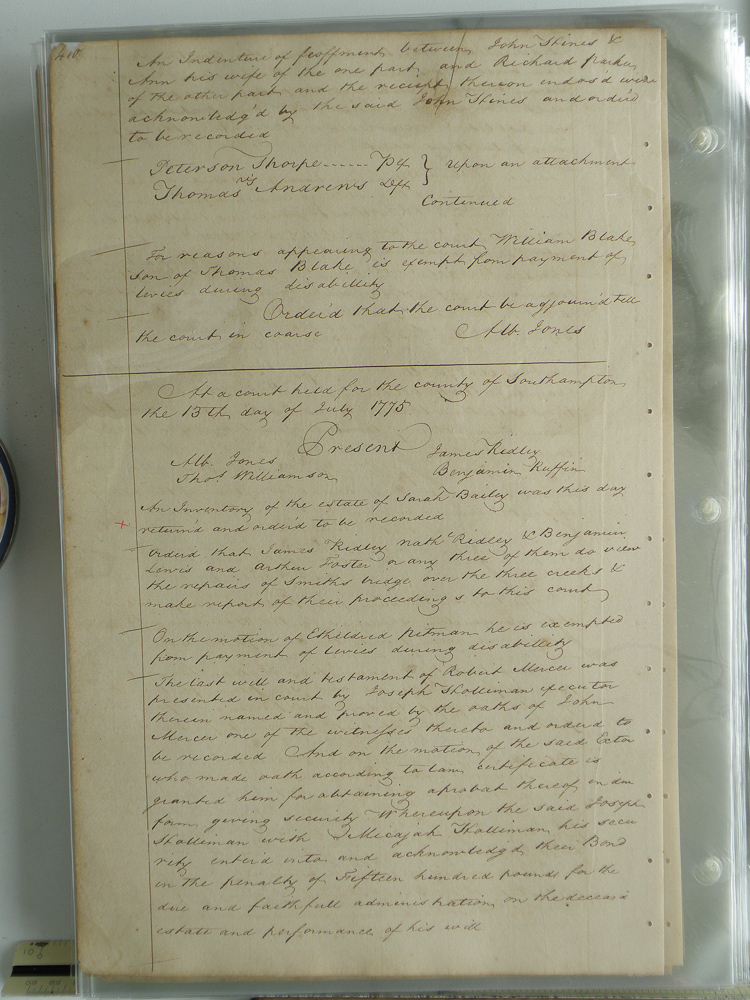 410
An Indenture of feoffment between John Thines &
Ann his wife of the one part and Richard Parker
of the other part and the receipt thereon indors'd were
acknowledg'd by the said John Thines and order'd
to be recorded
Peterson Thorpe ...... Plt } upon an attachment
vs
Thomas Andrews Deft
Continued
For reasons appearing to the court William Blake
son of Thomas Blake is exempt from payment of
levies during disabillity
Order'd that the court be adjourn'd till
the court in coarse
Alb. Jones
At a court held for the county of Southampton
the 13th day of July 1775
Present
Alb. Jones
James Ridley
Thos Williamson
Benjamin Ruffin
An Inventory of the estate of Sarah Bailey was this day
return'd and order'd to be recorded
Order'd that James Ridley Nath Ridley & Benjamin
Lewis and Arthur Foster or any three of them do view
the repairs of Smiths bridge over the three creeks &
make report of their proceedings to this court
On the motion of Etheldred Pitman he is exempted
from payment of levies during disabillity
The last will and testament of Robert Mercer was
presented in court by Joseph Holliman executor
therein named and proved by the oaths of John
Mercer one of the witnesses thereto and order'd to
be recorded And on the motion of the said Ector
who made oath according to law certificate is
granted him for obtaining a probat thereof in due
form giving security Whereupon the said Joseph
Holliman with Micajah Holliman his secu
rety enter'd into and acknowledg'd their Bond
in the penalty of Fifteen hundred pounds for the
due and faithfull administration on the deceas'd
estate and performance of his will